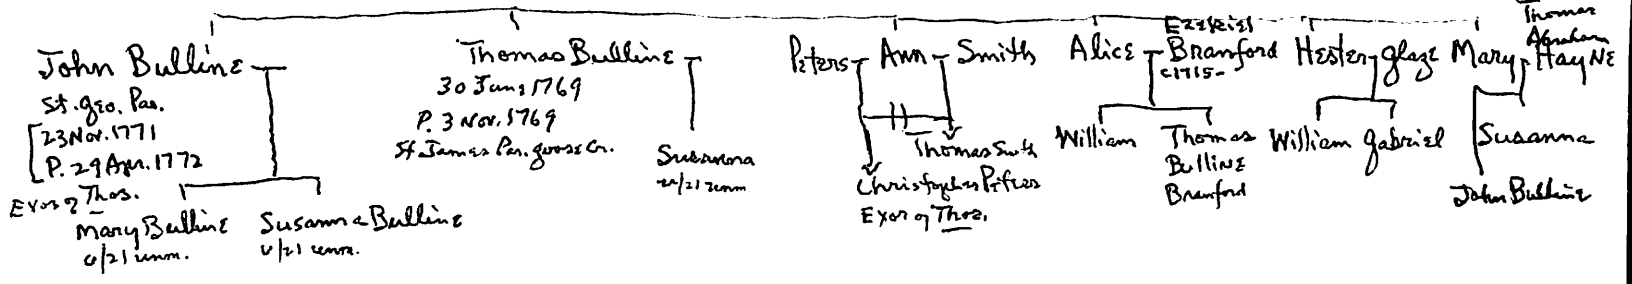 John Bulline
St. Geo. Par.
[23 Nov. 1771
P. 29 Apr. 1772
Exor of Thos.
Mary Bulline
u/21 unm.
Susanna Bulline
u/21 unm.
Thomas Bulline
30 June 1769
P. 3 Nov. 1769
St. James Par. Goose Cr.
Susanna
u/21 unm
Peters Ann Smith
Thomas Smith
Christopher Peters
Exor of Thos.
Alice Ezekiel
Branford
c1715-
William
Thomas
Bulline
Branford
Hester Glaze
William Gabriel
Mary Thomas
Abraham
Hayne
Susanna
John Bulline